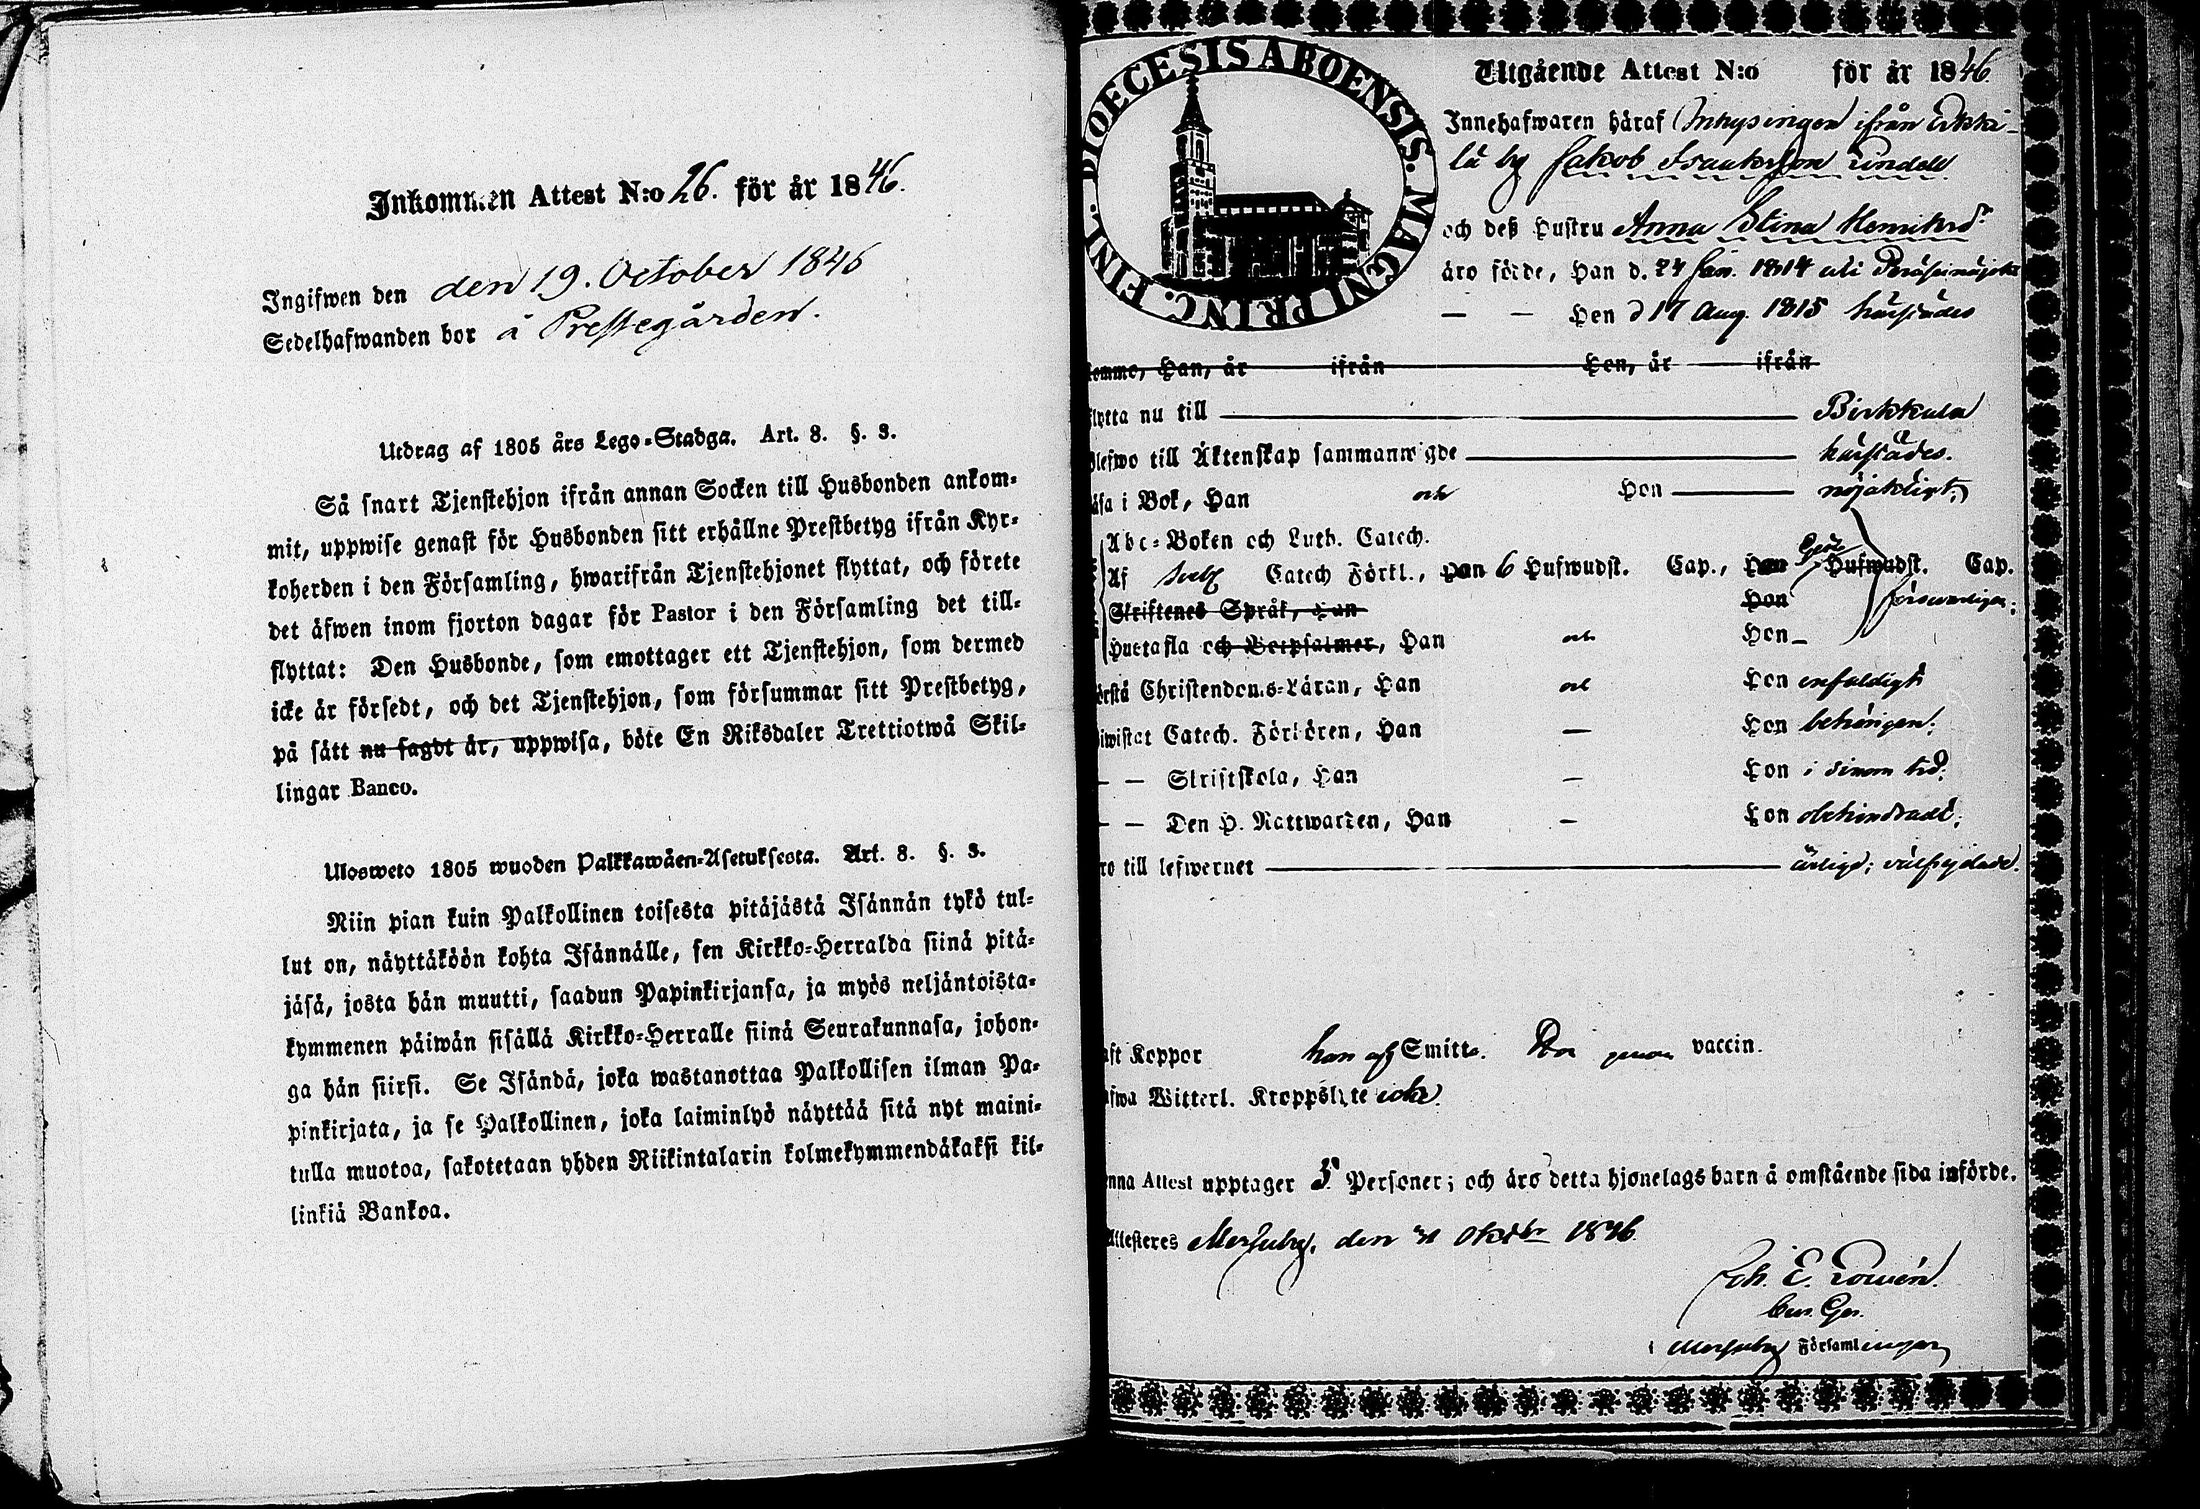 Inkommen Attest N:o 26. för år 1846.
Ingifwen den den 19. October 1846
Sedelhafwanden bor å Prestegården.
Utdrag af 1805 års Lego-Stadga. Art. 8. §. 3.
Så snart Tjenstehjon ifrån annan Socken till Husbonden ankom-
mit, uppwise genast för Husbonden sitt erhållne Prestbetyg ifrån Kyr-
koherden i den Församling, hwarifrån Tjenstehjonet flyttat, och förete
det äfwen inom fjorton dagar för Pastor i den Församling det till-
flyttat: Den Husbonde, som emottager ett Tjenstehjon, som dermed
icke är försedt, och det Tjenstehjon, som försummar sitt Prestbetyg,
på sätt nu sagdt är, uppwisa, böte En Riksdaler Trettiotwå Skil-
lingar Banco.
Ulosweto 1805 wuoden Palkkawäen-Asetuksesta. Art. 8. §. 3.
Niin pian kuin Palkollinen toisesta pitäjästä Isännän tykö tul-
lut on, näyttäköön kohta Isännälle, sen Kirkko-Herralda siinä pitä-
jäsä, josta hän muutti, saadun Papinkirjansa, ja myös neljäntoista-
kymmenen päiwän sisällä Kirkko-Herralle siinä Seurakunnasa, johon-
ga hän siirsi. Se Isändä, joka wastanottaa Palkollisen ilman Pa-
pinkirjata, ja se Palkollinen, joka laiminlyö näyttää sitä nyt maini-
tulla muotoa, sakotetaan yhden Riikintalarin kolmekymmendäkaksi kil-
linkiä Bankoa.
DIOECESIS ABOENSIS. MAGNI PRINC. FINL.
Utgående Attest N:o för år 1846
Innehafwaren häraf Inhysingen ifrån Erkki-
lä by Jakob Isaaksson Lindell
och deß Hustru Anna Stina Henriksd:
äro födde, Han d. 24 Jan. 1814 uti
— — Hon d 17 Aug. 1815 härstädes
komme, Han, år ifrån Hon, år ifrån
flytta nu till Birkkala
blefwo till Äktenskap sammanwigde härstädes.
läsa i Bok, Han och Hon nöjaktigt;
Abc-Boken och Luth. Catech.
Af Catech Förkl., Han 6 Hufwudst. Cap., Hon Hufwudst. Cap.
Skriftenes Språk, Han Hon försvarligen;
Hustafla och Botpsalmer, Han och Hon
förstå Christendoms-Läran, Han och Hon enfaldigt
biwistat Catech. Förhören, Han — Hon behörigen;
— — Skriftskola, Han — Hon i sinom tid;
— — Den H. Nattwarden, Han — Hon obehindrade;
äro till lefwernet ärlige; välfrejdade.
haft Koppor han af Smitta. Hon genom vaccin.
hafwa Witterl. Kroppslyte icke
Denna Attest upptager 5 Personer; och äro detta hjonelags barn å omstående sida införde.
Attesteres den Oktbr 1846
Joh. E.
i Församlingen